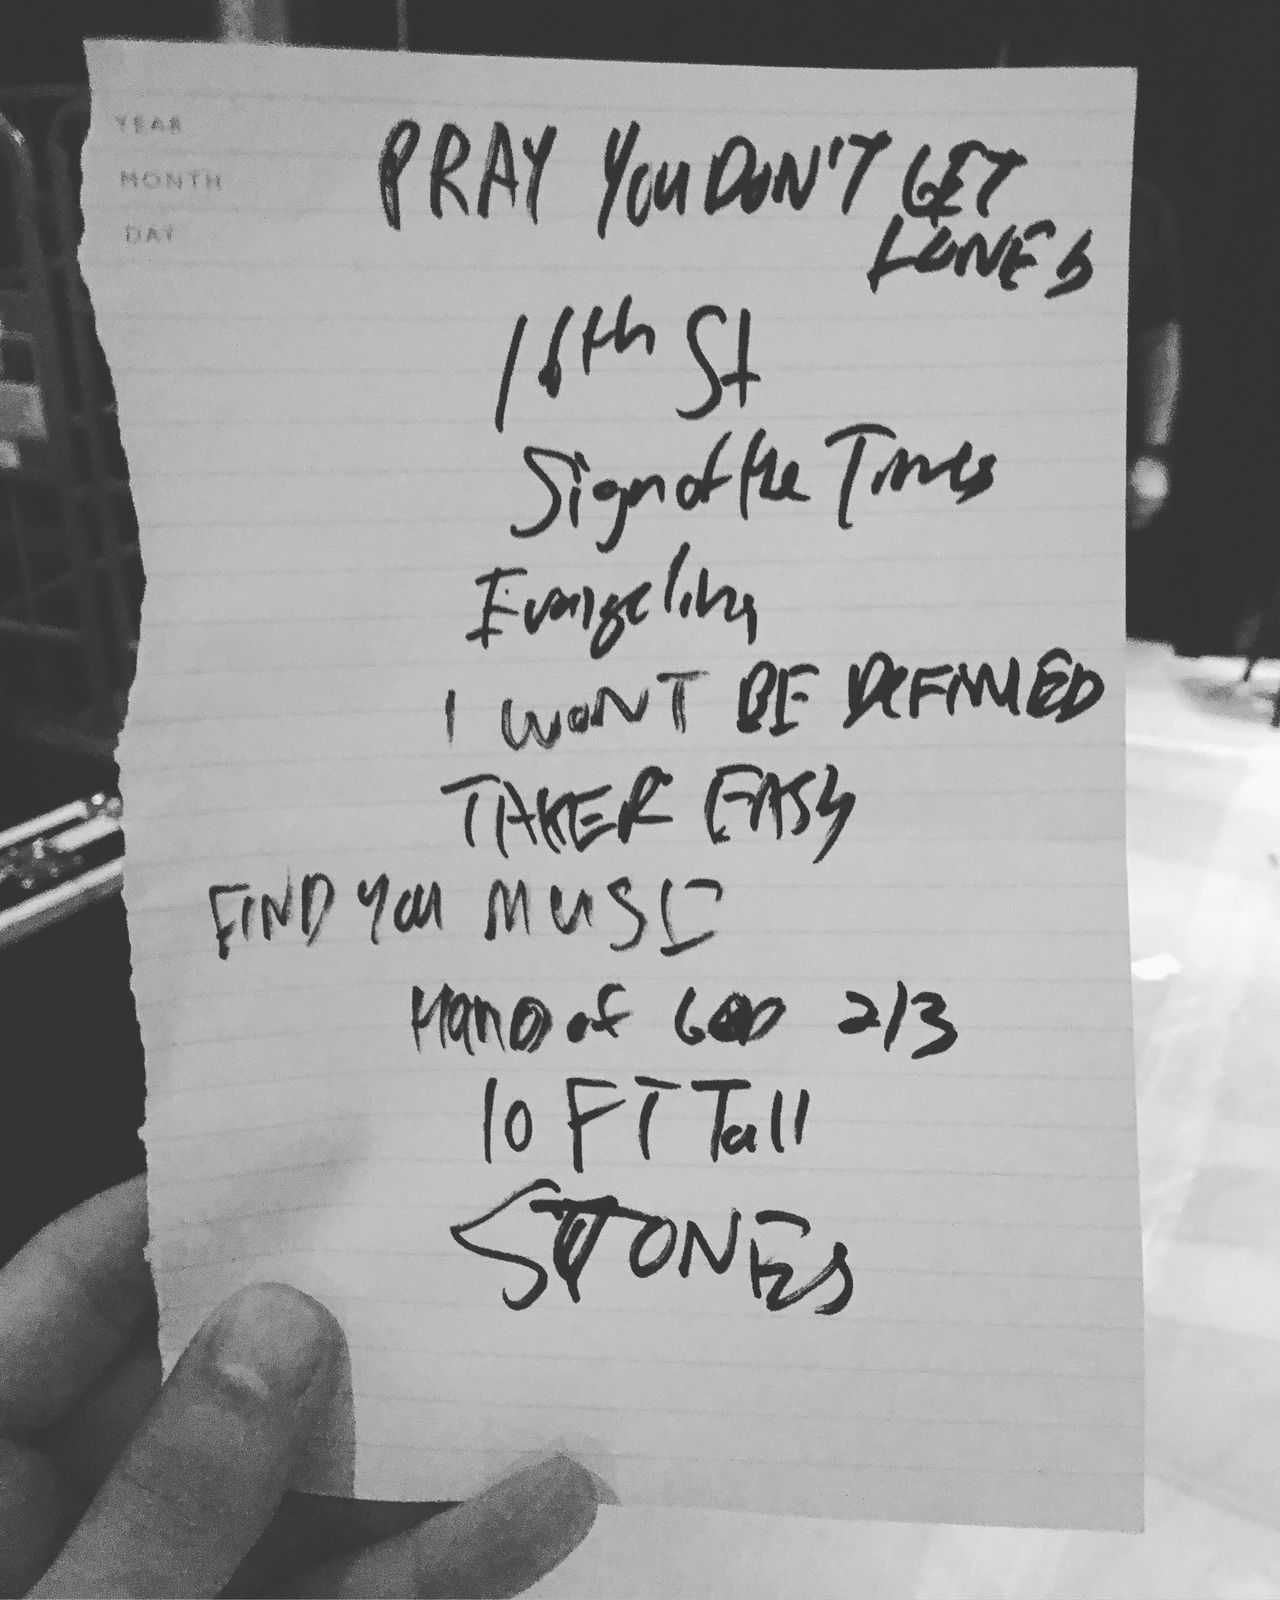 YEAR
MONTH
DAY
PRAY YOU DON'T GET
LONELY
16th St
Sign of the Times
Evangeline
I WONT BE DEFINED
TAKER EASY
FIND YOU MUSIC
HAND of GOD 2/3
10 FT Tall
STONES